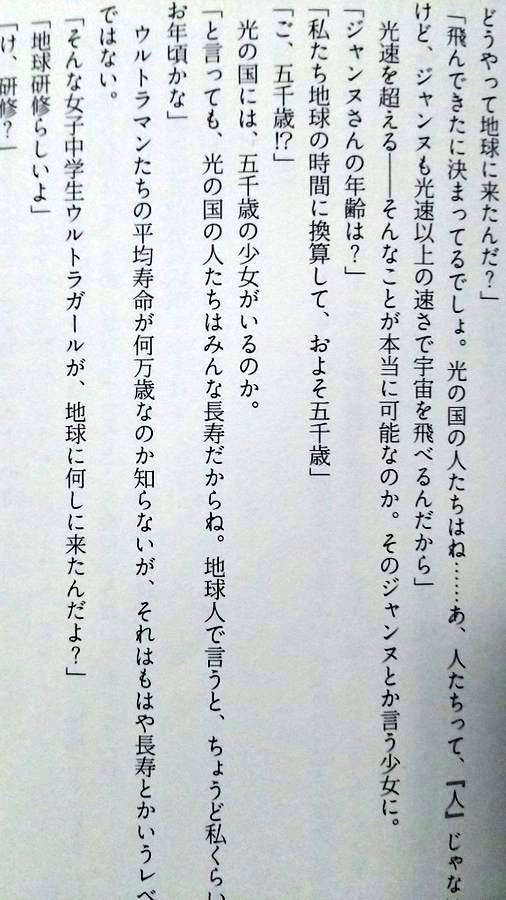 どうやって地球に来たんだ？」
「飛んできたに決まってるでしょ。光の国の人たちはね……あ、人たちって、『人』じゃな
けど、ジャンヌも光速以上の速さで宇宙を飛べるんだから」
光速を超える――そんなことが本当に可能なのか。そのジャンヌとか言う少女に。
「ジャンヌさんの年齢は？」
「私たち地球の時間に換算して、およそ五千歳」
「ご、五千歳!?」
光の国には、五千歳の少女がいるのか。
「と言っても、光の国の人たちはみんな長寿だからね。地球人で言うと、ちょうど私くらい
お年頃かな」
ウルトラマンたちの平均寿命が何万歳なのか知らないが、それはもはや長寿とかいうレベ
ではない。
「そんな女子中学生ウルトラガールが、地球に何しに来たんだよ？」
「地球研修らしいよ」
「け、研修？」